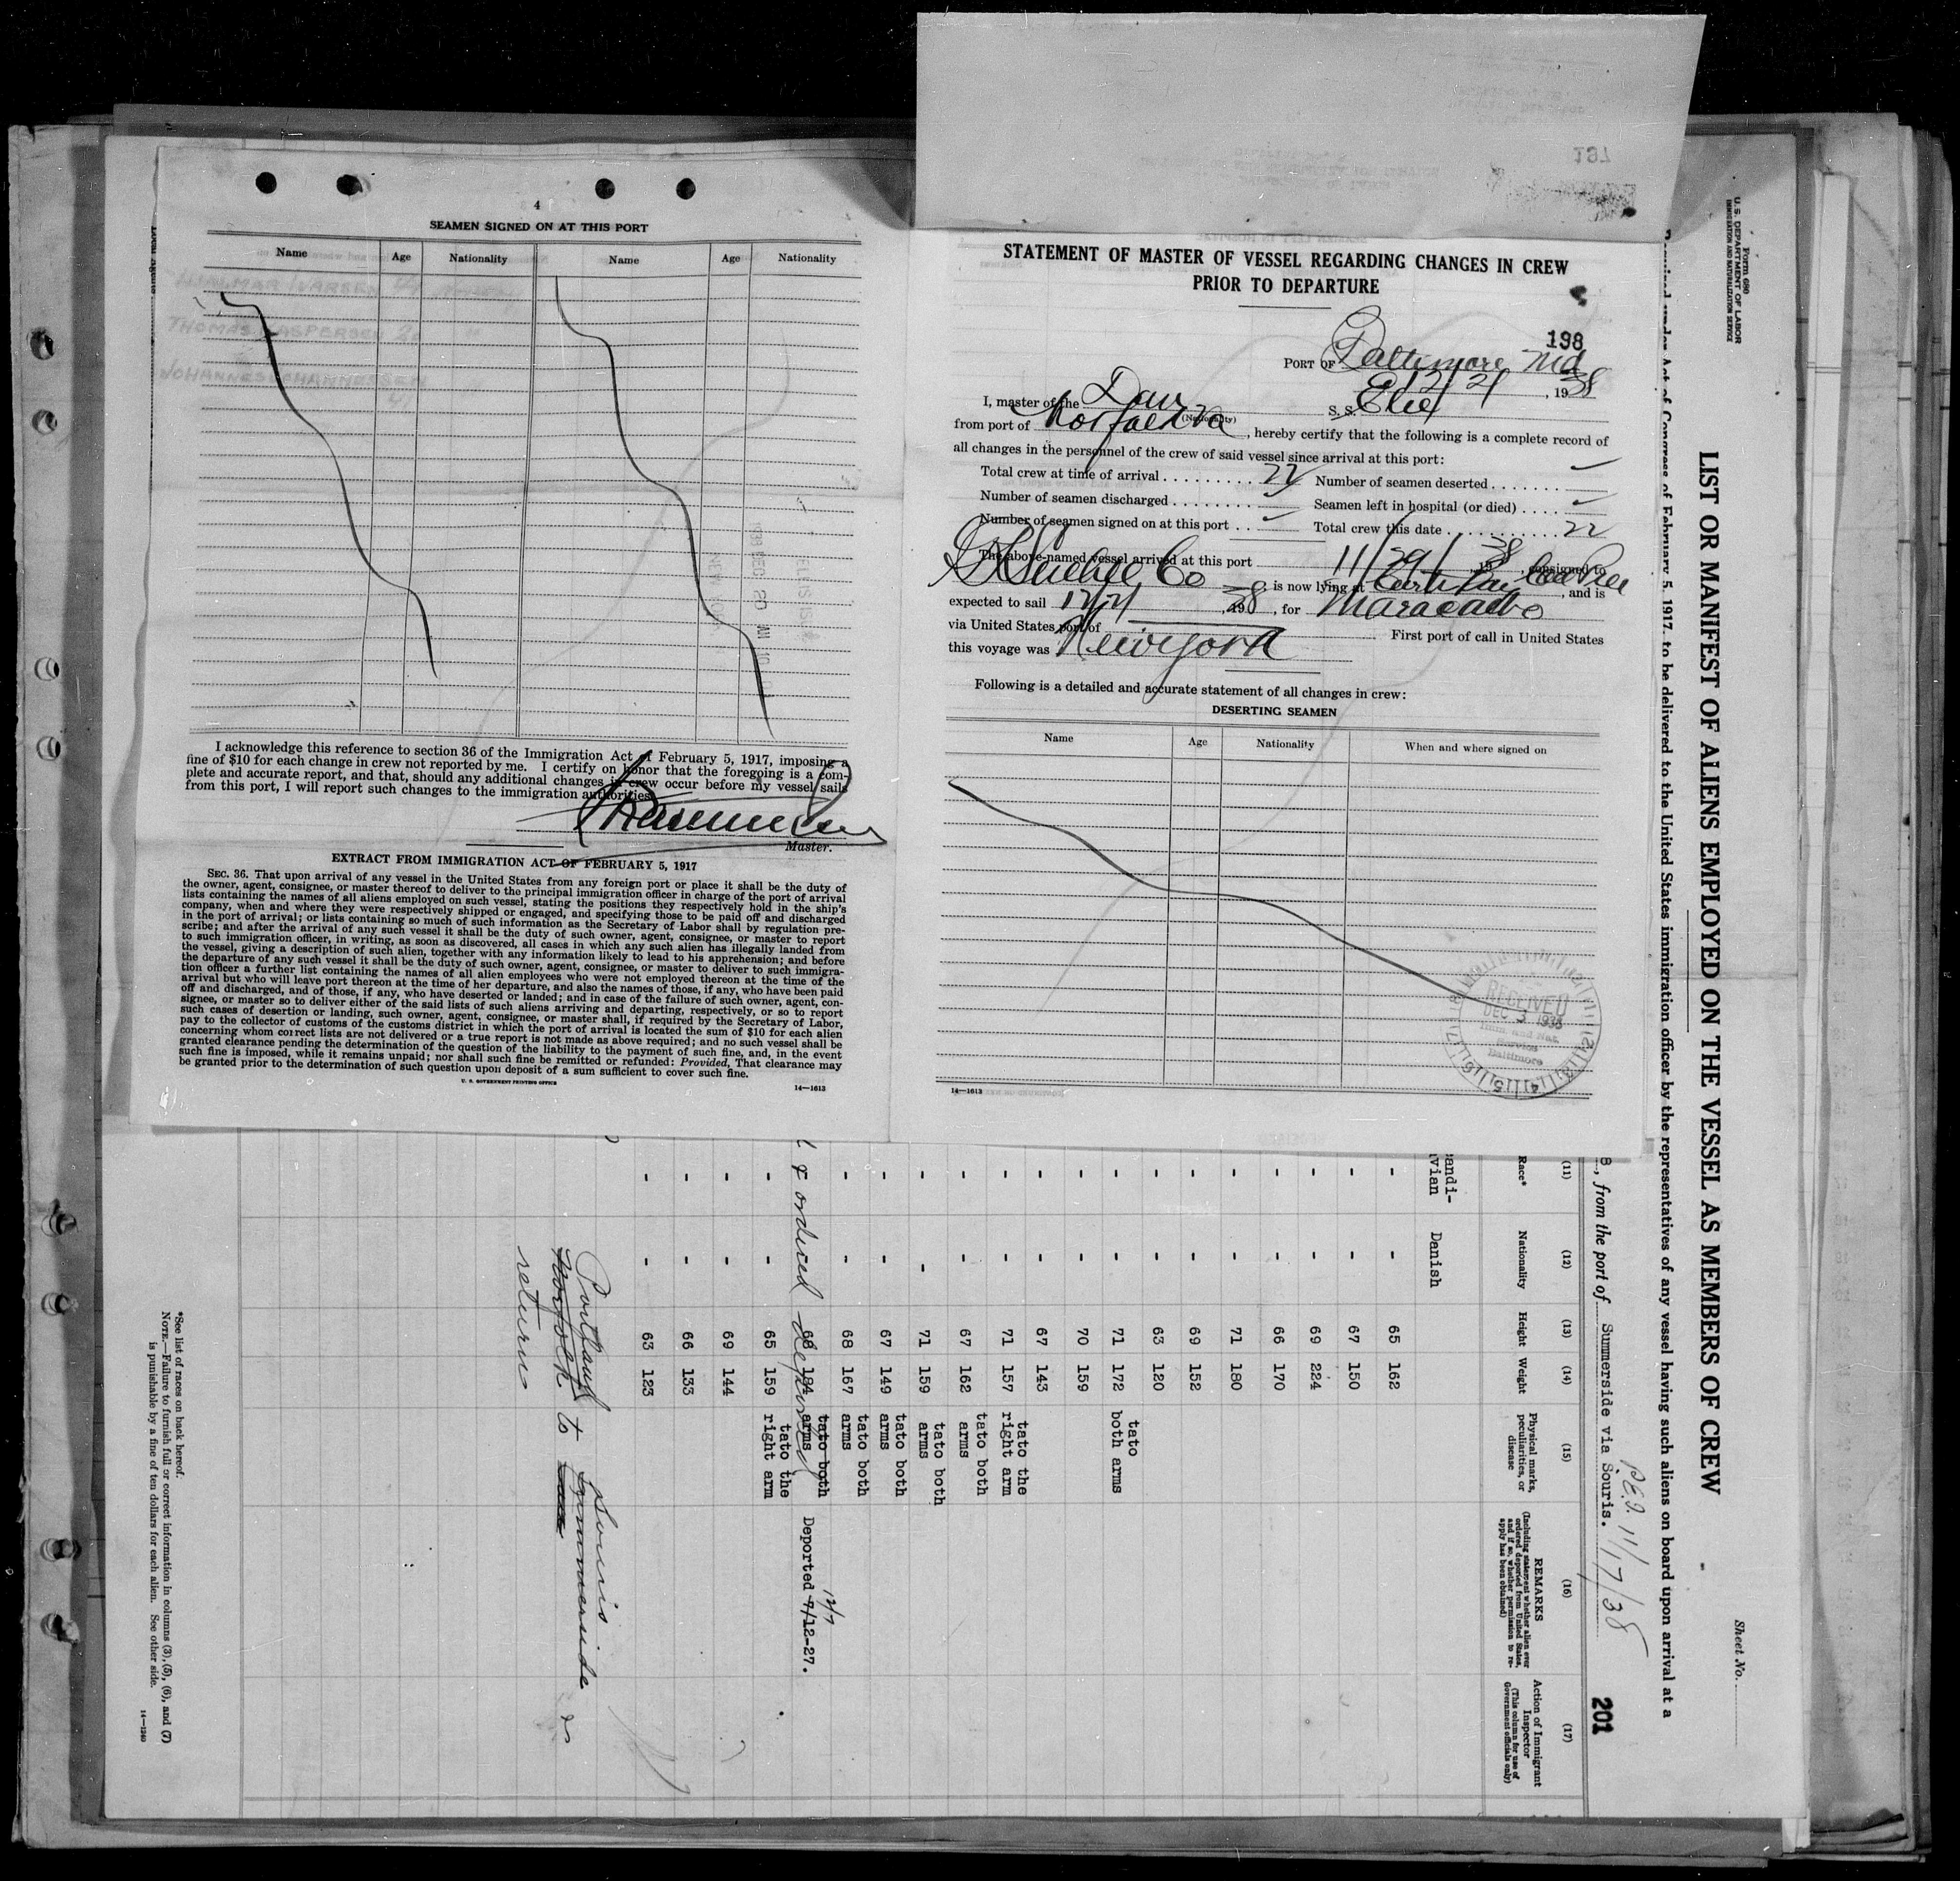 4
SEAMEN SIGNED ON AT THIS PORT
Name Age Nationality Name Age Nationality
HJALMAR IVARSEN
THOMAS KASPERSEN
JOHANNES JOHANNESSEN
I acknowledge this reference to section 36 of the Immigration Act of February 5, 1917, imposing a
fine of $10 for each change in crew not reported by me. I certify on honor that the foregoing is a com-
plete and accurate report, and that, should any additional changes in crew occur before my vessel sails
from this port, I will report such changes to the immigration authorities.
Master.
EXTRACT FROM IMMIGRATION ACT OF FEBRUARY 5, 1917
SEC. 36. That upon arrival of any vessel in the United States from any foreign port or place it shall be the duty of
the owner, agent, consignee, or master thereof to deliver to the principal immigration officer in charge of the port of arrival
lists containing the names of all aliens employed on such vessel, stating the positions they respectively hold in the ship's
company, when and where they were respectively shipped or engaged, and specifying those to be paid off and discharged
in the port of arrival; or lists containing so much of such information as the Secretary of Labor shall by regulation pre-
scribe; and after the arrival of any such vessel it shall be the duty of such owner, agent, consignee, or master to report
to such immigration officer, in writing, as soon as discovered, all cases in which any such alien has illegally landed from
the vessel, giving a description of such alien, together with any information likely to lead to his apprehension; and before
the departure of any such vessel it shall be the duty of such owner, agent, consignee, or master to deliver to such immigra-
tion officer a further list containing the names of all alien employees who were not employed thereon at the time of the
arrival but who will leave port thereon at the time of her departure, and also the names of those, if any, who have been paid
off and discharged, and of those, if any, who have deserted or landed; and in case of the failure of such owner, agent, con-
signee, or master so to deliver either of the said lists of such aliens arriving and departing, respectively, or so to report
such cases of desertion or landing, such owner, agent, consignee, or master shall, if required by the Secretary of Labor,
pay to the collector of customs of the customs district in which the port of arrival is located the sum of $10 for each alien
concerning whom correct lists are not delivered or a true report is not made as above required; and no such vessel shall be
granted clearance pending the determination of the question of the liability to the payment of such fine, and, in the event
such fine is imposed, while it remains unpaid; nor shall such fine be remitted or refunded: Provided, That clearance may
be granted prior to the determination of such question upon deposit of a sum sufficient to cover such fine.
U. S. GOVERNMENT PRINTING OFFICE 14—1613
STATEMENT OF MASTER OF VESSEL REGARDING CHANGES IN CREW
PRIOR TO DEPARTURE
198
PORT OF Baltimore Md
12/2/ , 1938
I, master of the Dan S. S. Elie
(Nationality)
from port of Norfolk Va , hereby certify that the following is a complete record of
all changes in the personnel of the crew of said vessel since arrival at this port:
Total crew at time of arrival 22 Number of seamen deserted ✓
Number of seamen discharged ✓ Seamen left in hospital (or died) ✓
Number of seamen signed on at this port ✓ Total crew this date 22
The above-named vessel arrived at this port 11/29/ 1938, consigned to
Co , is now lying at Curtis Bay Coal Pier , and is
expected to sail 12/2/ 1938, for Maracaibo
via United States port of First port of call in United States
this voyage was New York
Following is a detailed and accurate statement of all changes in crew:
DESERTING SEAMEN
Name Age Nationality When and where signed on
RECEIVED
DEC 3 1938
Service
Baltimore
14—1613
Form 680
U. S. DEPARTMENT OF LABOR
IMMIGRATION AND NATURALIZATION SERVICE
Sheet No.
LIST OR MANIFEST OF ALIENS EMPLOYED ON THE VESSEL AS MEMBERS OF CREW
Required under Act of Congress of February 5, 1917, to be delivered to the United States immigration officer by the representatives of any vessel having such aliens on board upon arrival at a
8, from the port of Summerside via Souris. P.E.I. 11/17/38
201
(11) (12) (13) (14) (15) (16) (17)
Race* Nationality Height Weight Physical marks, peculiarities, or disease
REMARKS
(Including statement whether alien ever ordered deported from United States, and if so, whether permission to re-apply has been obtained)
Action of Immigrant Inspector
(This column for use of Government officials only)
andi-
vian Danish
- - 65 162
- - 67 150
- - 69 224
- - 66 170
- - 71 180
- - 69 152
- - 63 120
- - 71 172 tato both arms
- - 70 159
- - 67 143
- - 71 157 tato the right arm
- - 67 162 tato both arms
- - 71 159 tato both arms
- - 67 149 tato both arms
- - 68 167 tato both arms
& ordered deported
68 184 tato both arms Deported 7/12-27.
12/7
- - 65 159 tato the right arm
- - 69 144
- - 66 133
- - 63 123
Portland Souris
Norfolk to Summerside &
return
*See list of races on back hereof.
NOTE.—Failure to furnish full or correct information in columns (3), (5), (6), and (7)
is punishable by a fine of ten dollars for each alien. See other side.
14—1240